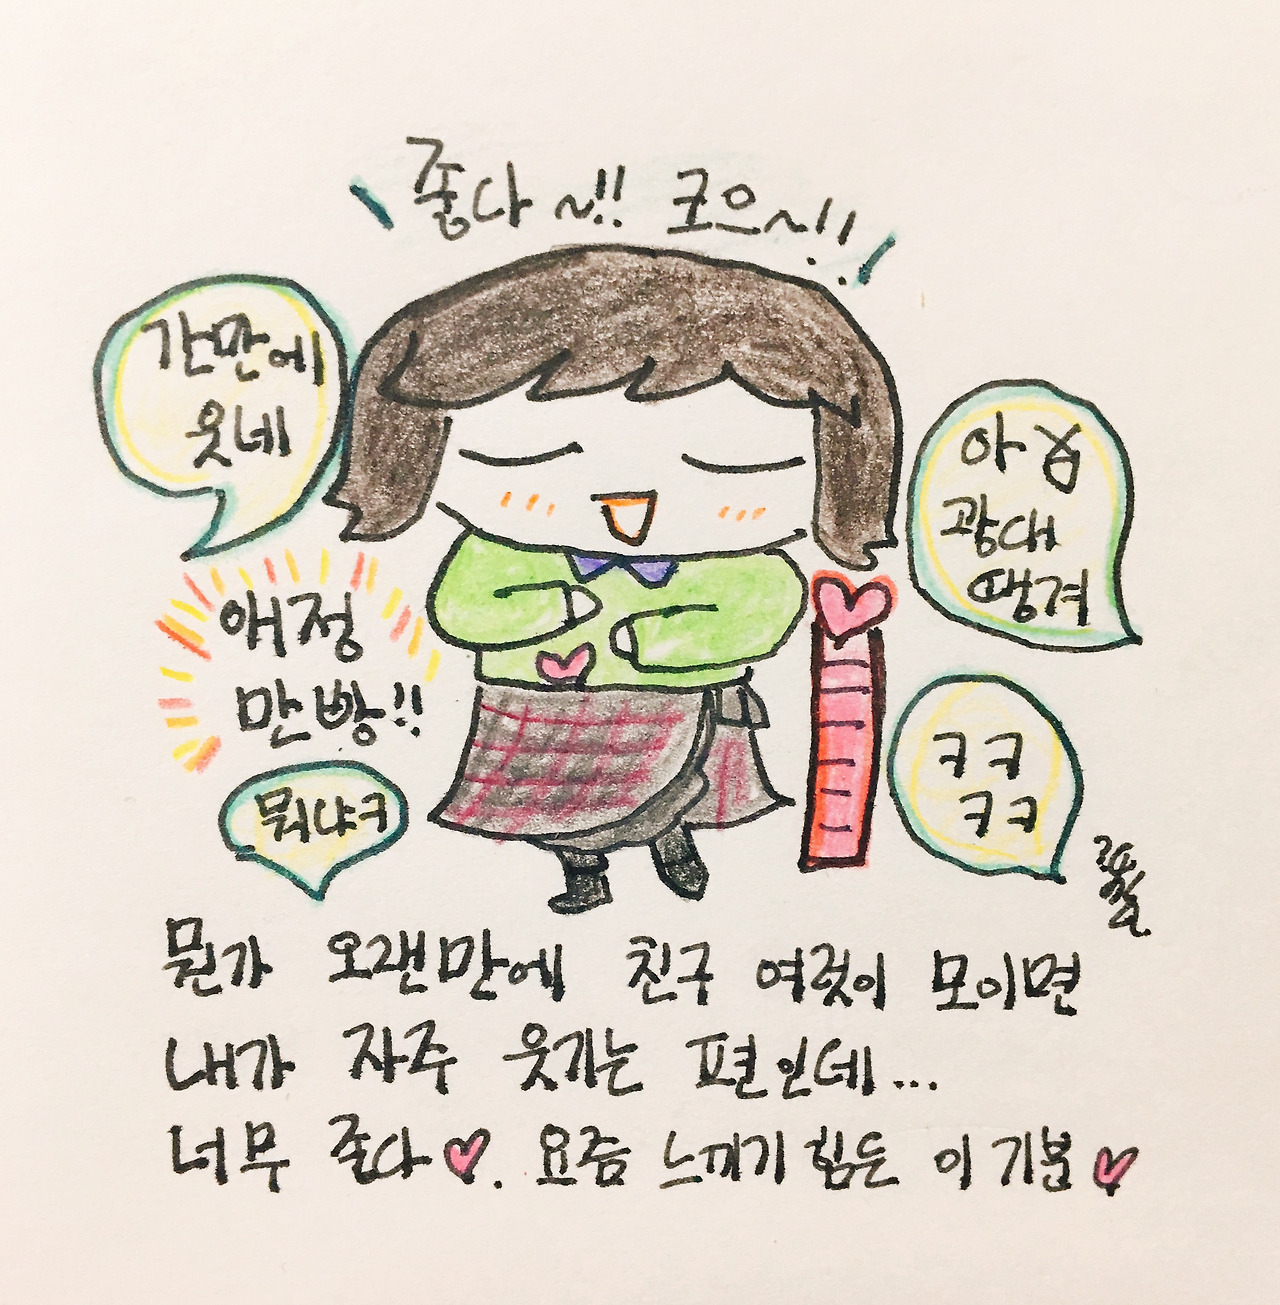 좋다~!! 크으~!!
간만에
웃네
아 ㅋ
광대
땡겨
애정
만빵!!
뭐냐ㅋ
ㅋㅋ
ㅋㅋ
뭔가 오랜만에 친구 여럿이 모이면
내가 자주 웃기는 편인데...
너무 좋다♥. 요즘 느끼기 힘든 이 기분♥